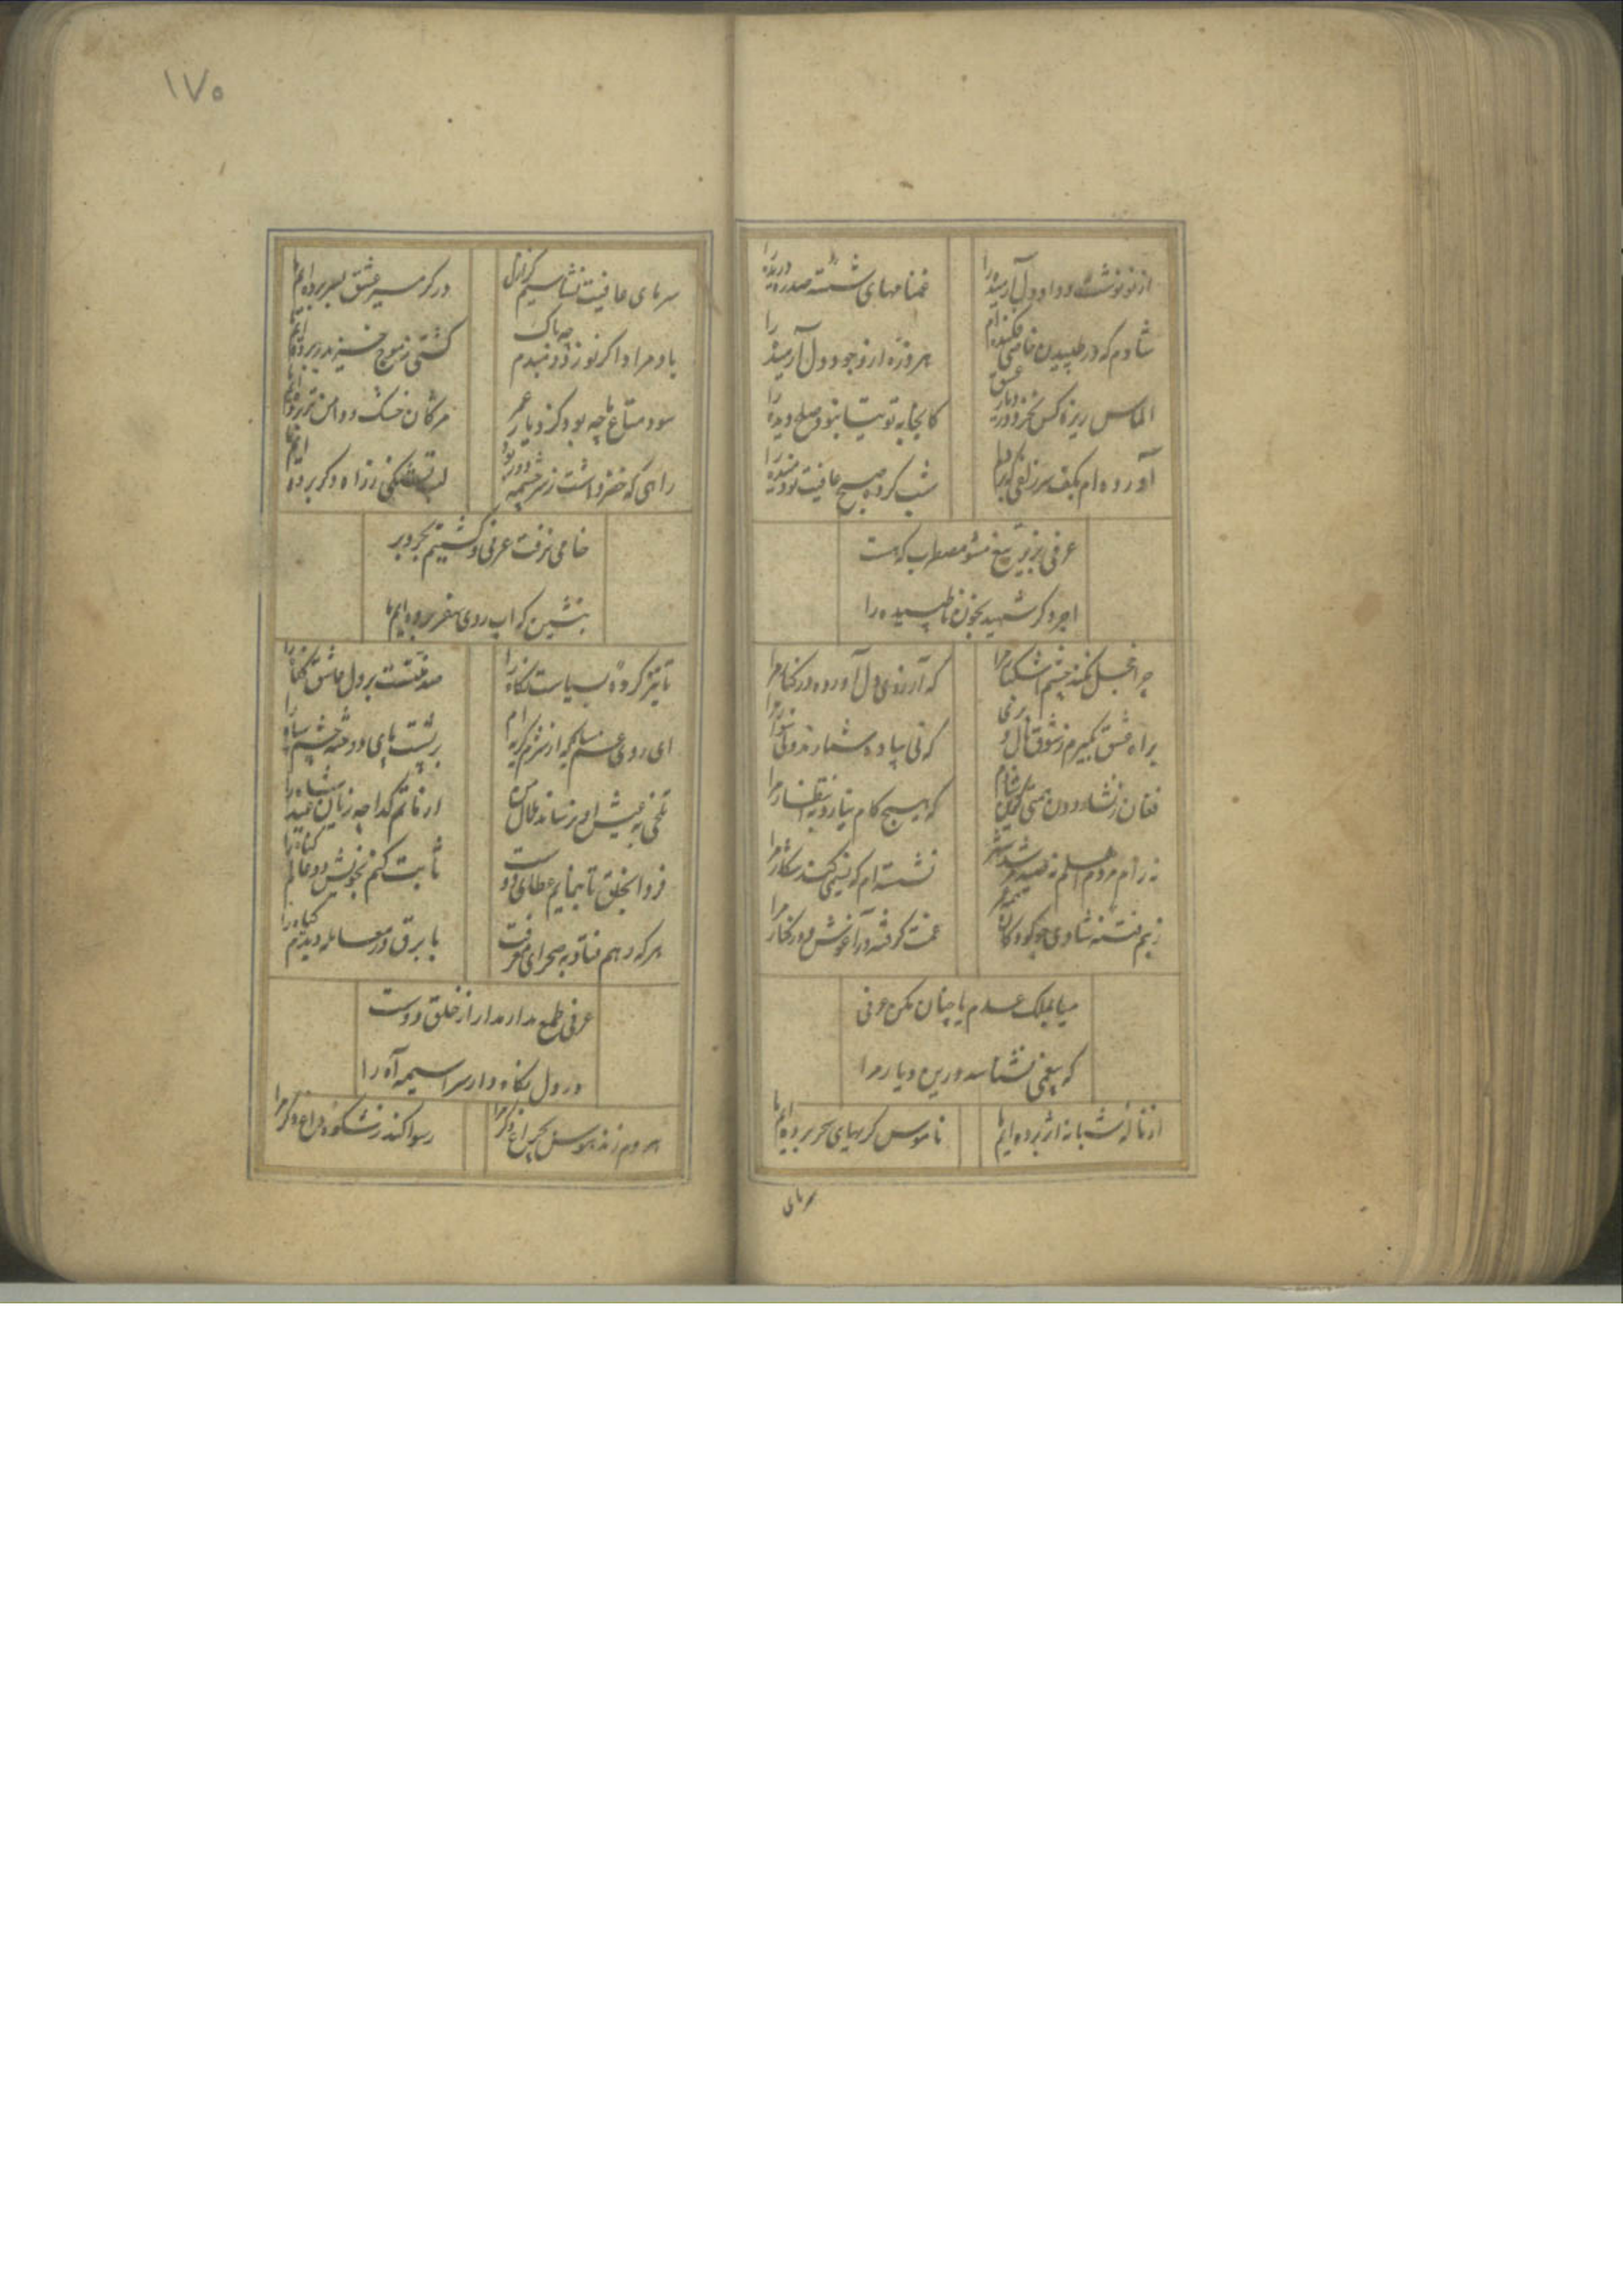 از نو نوشت و داد دل آرمیده را غمنامهای شسته صد ره دریده را
شادم که در طپیدن خاصی فکنده ام هر ذره از وجود دل آرمیده را
الماس ریزه کس نخرد در دیار عشق کانجا به توتیا صلح دیده را
آورده ام بکف سر زلفی که بارها شب کرده صبح عافیت نو دمیده را
عرفی بزیر تیغ مشو مضطرب که هست
اجر دگر شهید بخون ناطپیده را
چرا خجل نکند چشم اشکبار مرا که آرزوی دل آورده در کنار مرا
براه عشق نمیرم ز شوق که نی پیاده شمارند و نی سوار مرا
فغان ز نشاه دون همتی شادم که هیچ کام نیارد به انتظار مرا
نه رام مردم اهلم نه صید مرشد شهر نشسته ام که نسیمی کند شکار مرا
ز بیم فتنه شادی چو کودکان همه عمر غمت گرفته در آغوش و در کنار مرا
میا بملک عدم یا چنان مکن عرفی
که بیغمی نشناسد درین دیار مرا
از ناله شبانه اثر برده ایم ما ناموس گریهای سحر برده ایم ما
سرمای
۱۷۵
سرمای عافیت نشناسیم کز ازل در گرمسیر عشق بسر برده ایم ما
باد مراد اگر نوزد دمبدم چه باک کشتی ز موج خیز بدر برده ایم ما
سود متاع ما چه بود کز دیار عمر مژگان خشک و دامن تر برده ایم ما
راهی که خضر داشت ز سرچشمه دور بود لب تشنگی ز راه دگر برده ایم ما
خامی نرفت عرفی و گشتیم بحر و بر
بنشین که آب روی سفر برده ایم ما
تا تیز کرده سیاست نگاه را صد منت است بر دل عاشق گناه را
ای روی غم که از شرم گریه ام بر پشت پای دوخته چشم سیاه را
تلخی به عیش او نرساند ملال من از ماتم گدا چه زیان عید شاه را
فردا بخلق تا بنمایم عطای دوست ثابت کنم بخویش دو عالم گناه را
هر که رهم فتاد به صحرای معرفت با برق در معامله دیدم گیاه را
عرفی طمع مدار مدارا ز خلق دوست
در دل نگاه دار سراسیمه آه را
هر دم زند هوس بچراغ دگر مرا رسوا کند ز شکوه داغ دگر مرا